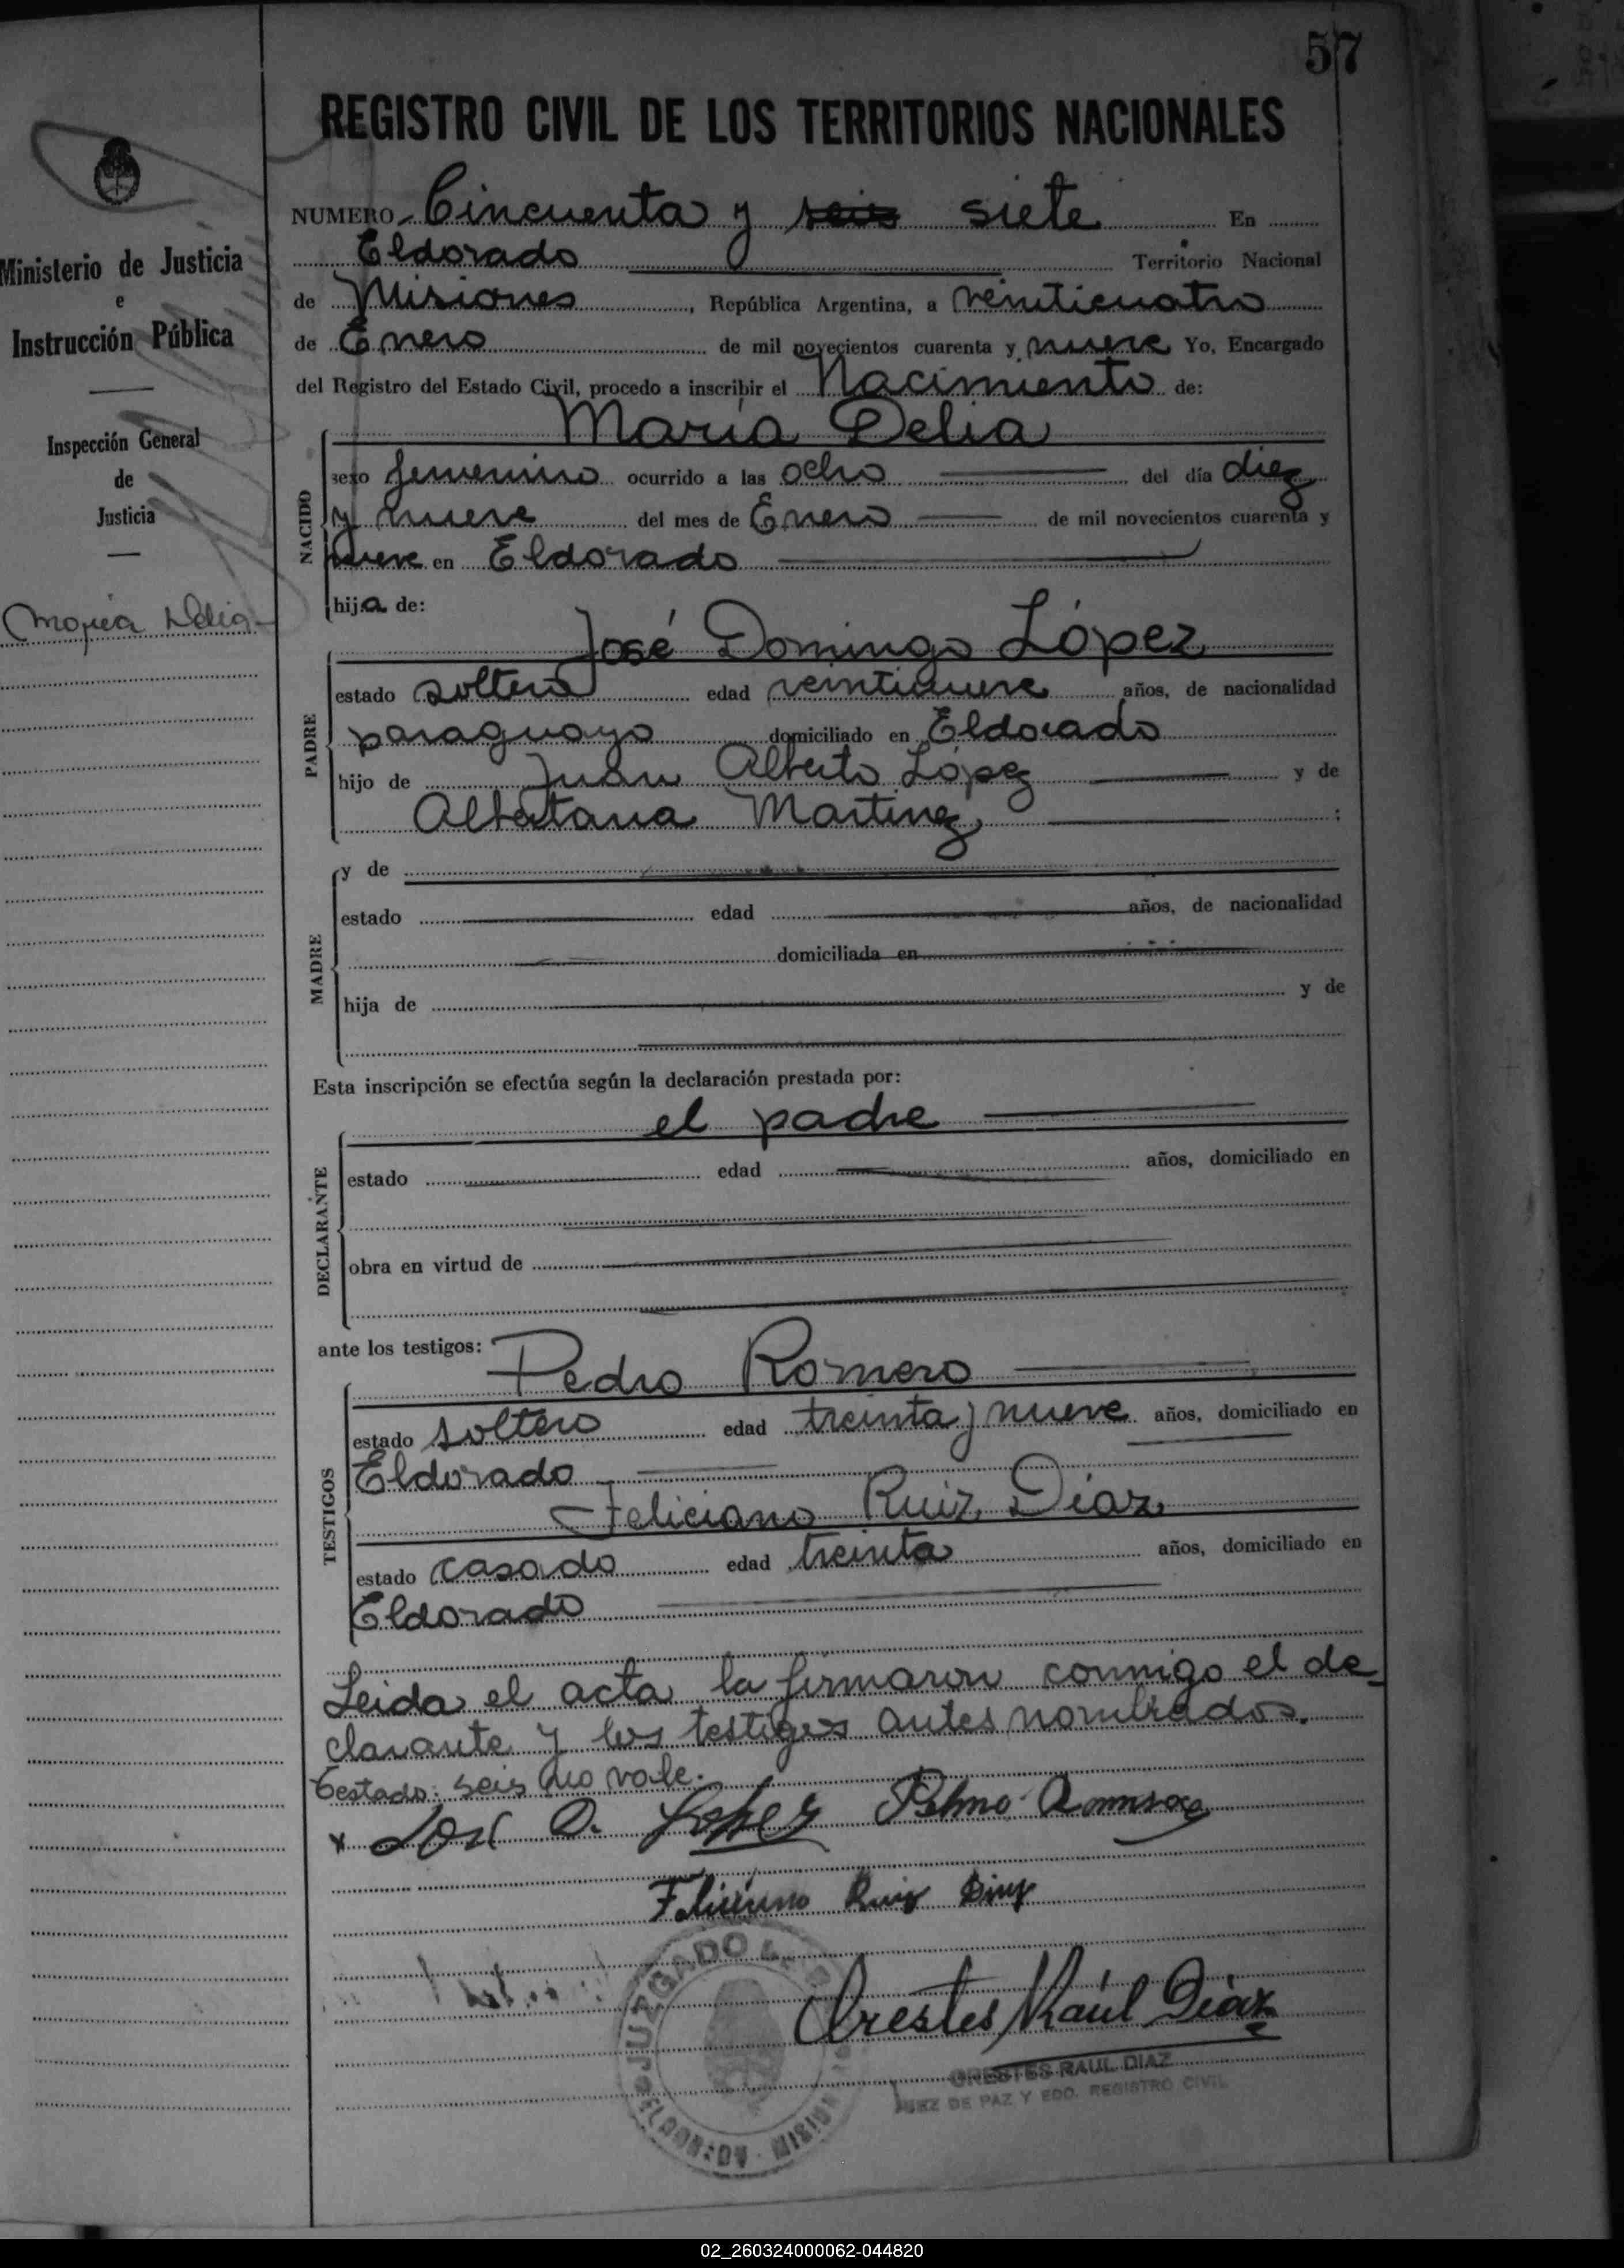 57
REGISTRO CIVIL DE LOS TERRITORIOS NACIONALES
Ministerio de Justicia
e
Instrucción Pública
Inspección General
de
Justicia
María Delia
NUMERO Cincuenta y seis siete En
Eldorado Territorio Nacional
de Misiones, República Argentina, a veinticuatro
de Enero de mil novecientos cuarenta y nueve Yo, Encargado
del Registro del Estado Civil, procedo a inscribir el Nacimiento de:
María Delia
NACIDO
sexo femenino ocurrido a las ocho del día diez
y nueve del mes de Enero de mil novecientos cuarenta y
nueve en Eldorado
hija de:
José Domingo López
PADRE
estado soltero edad veintinueve años, de nacionalidad
paraguayo domiciliado en Eldorado
hijo de Juan Alberto López y de
Martinez ;
MADRE
y de
estado edad años, de nacionalidad
domiciliada en
hija de y de
Esta inscripción se efectúa según la declaración prestada por:
el padre
DECLARANTE
estado edad años, domiciliado en
obra en virtud de
ante los testigos:
Pedro Romero
TESTIGOS
estado soltero edad treinta y nueve años, domiciliado en
Eldorado
Feliciano Ruiz Díaz
estado casado edad treinta años, domiciliado en
Eldorado
Leida el acta la firmaron conmigo el de-
clarante y los testigos antes nombrados.
Testado: seis no vale.
x José D. Lopez
Feliciano Ruiz Diaz
Orestes Raúl Díaz
JUZGADO
ELDORADO - MISIONES
ORESTES RAUL DIAZ
JUEZ DE PAZ Y EDO. REGISTRO CIVIL
02_260324000062-044820